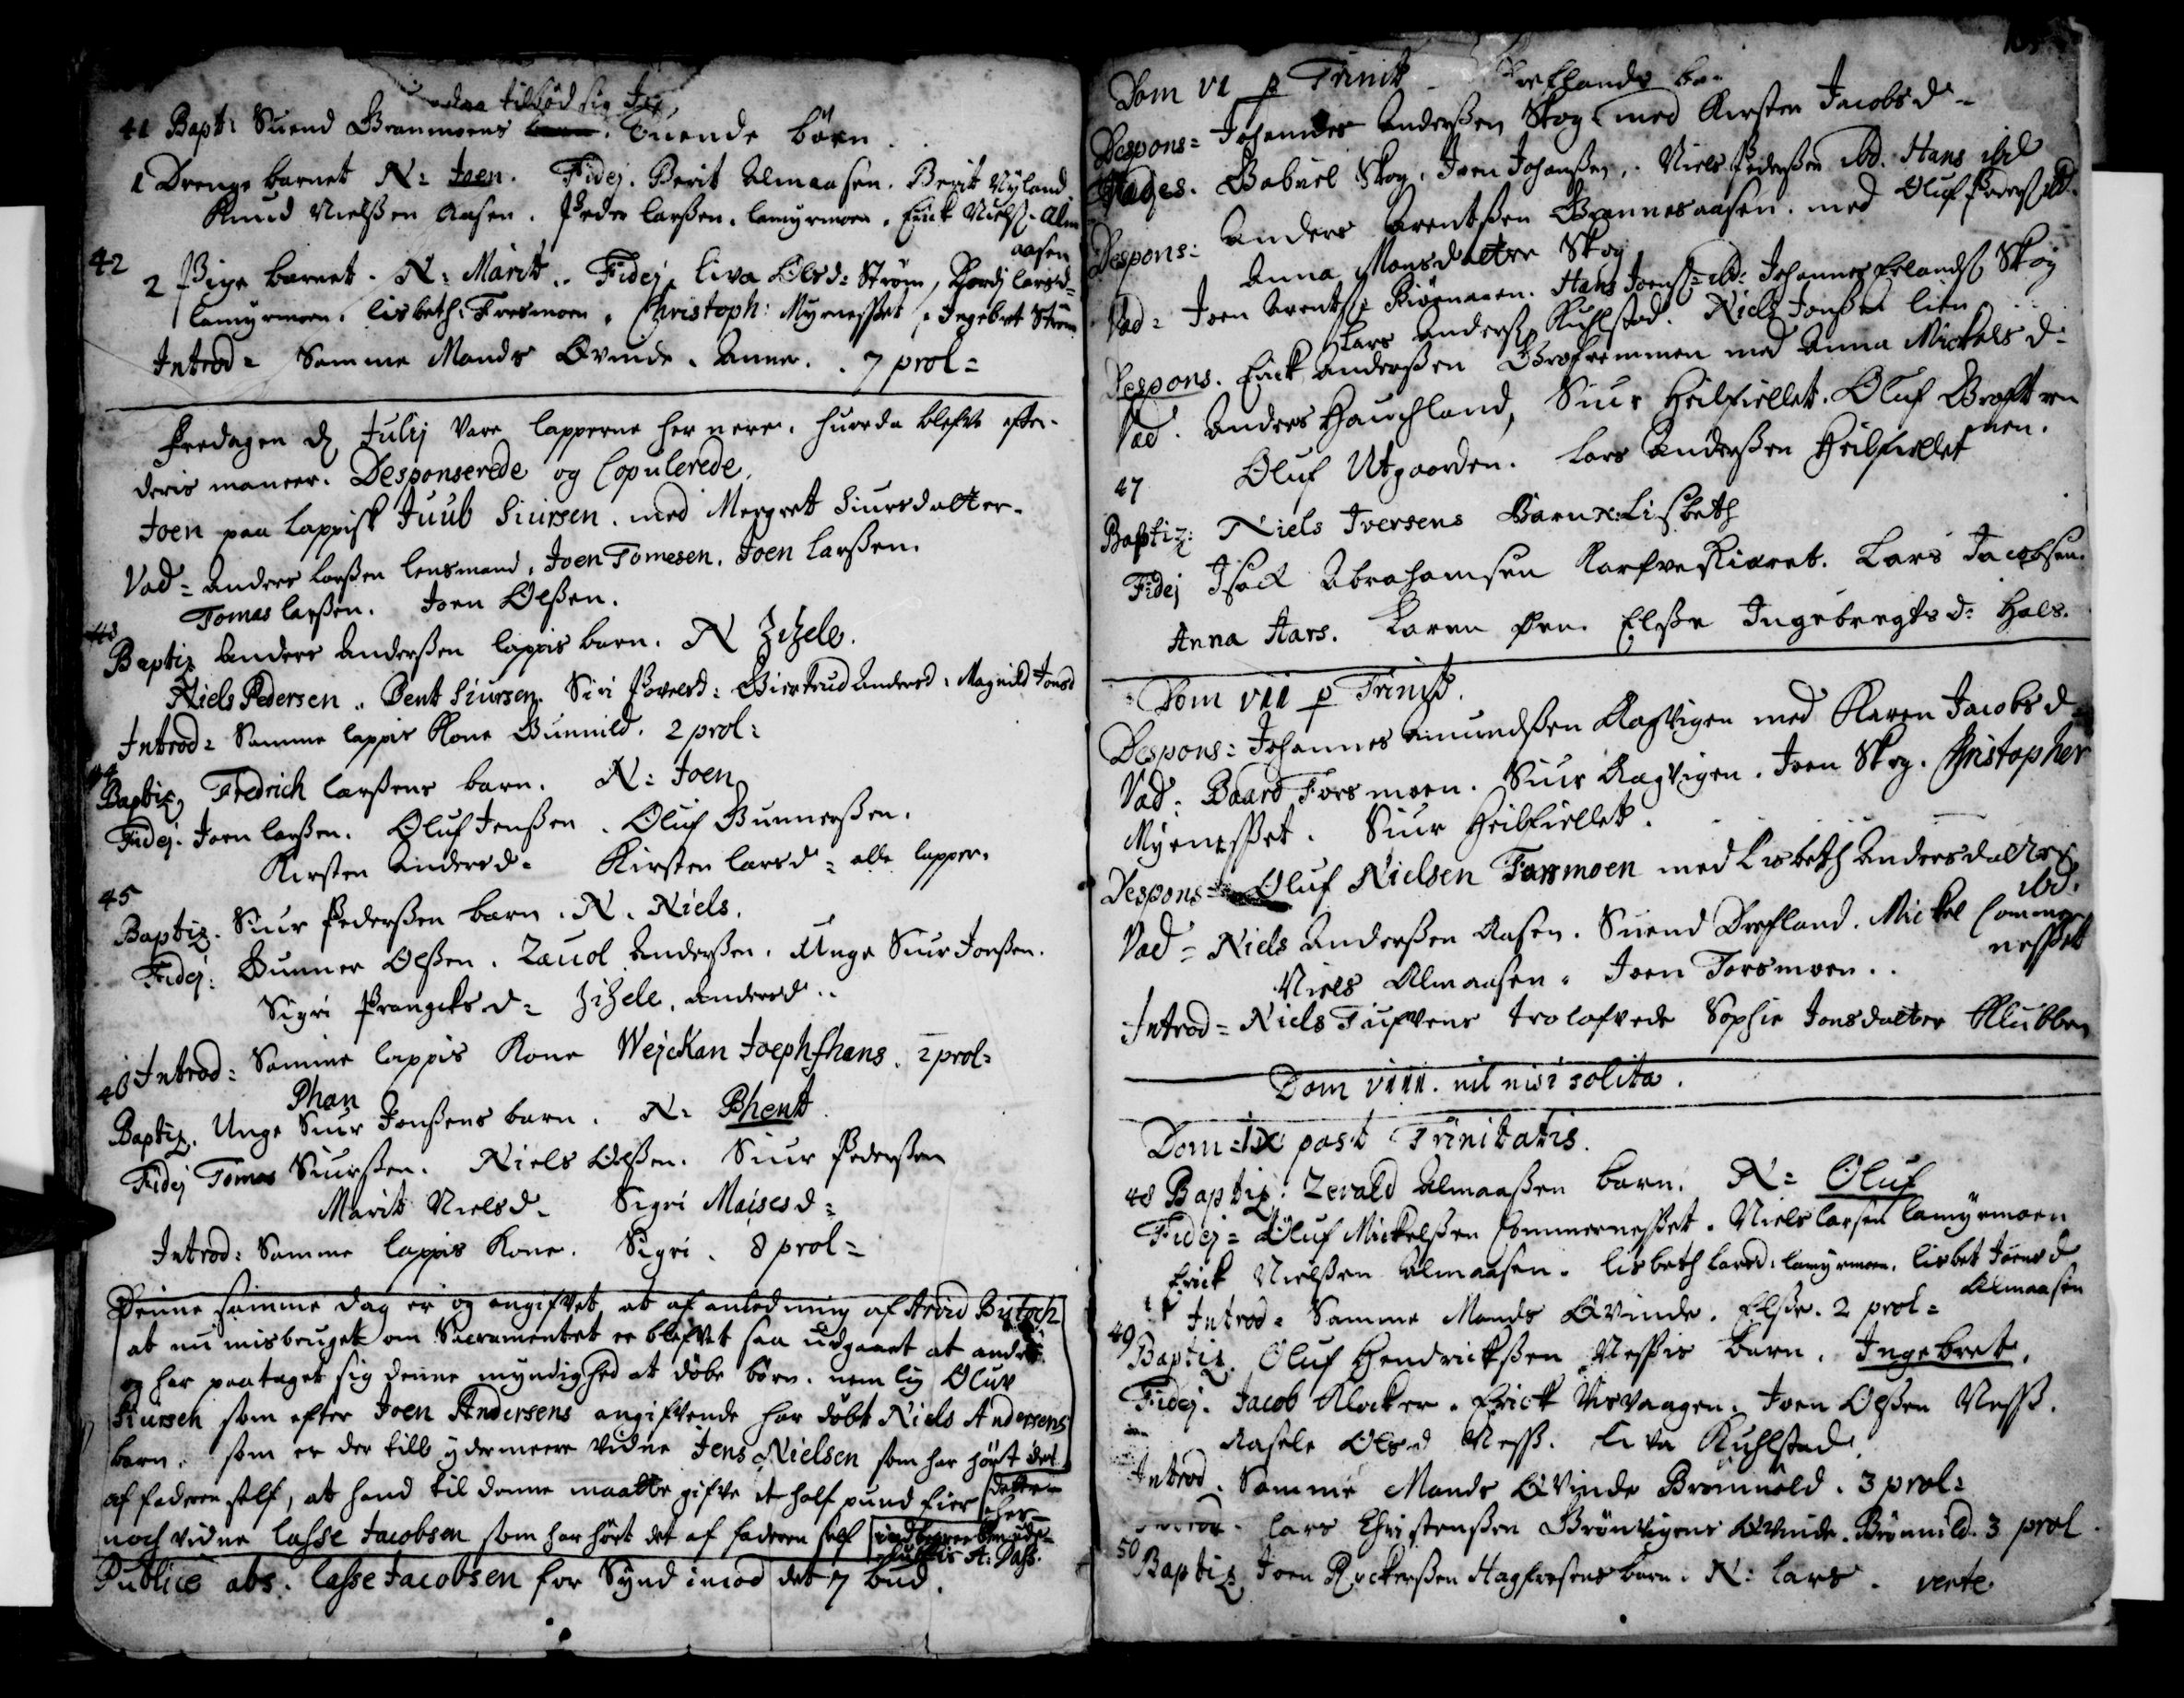 41 Bapt: Suend Granmoens tuende börn.
1 Drenge barnet N: Joen. Fidej. Berit Almaasen. Berit Nyland
Knud Nielssen Aasen. Peder Larssen. Lamyrmoen. Erick Nielss. Alm
aasen
42 2 Pige barnet. N: Marit. Fidej. Liva Olsd: Ström,
Lamyrmoen. Lisbeth Fresmoen. Christoph: Myrnesset. Ingebret Ström
Introd= Samme Mands Qvinde. Anne. 7 prol=
Fredagen d Julij vare lapperne her nere. huorda blefve efter
deris maneer. Desponserede og Copulerede.
Joen paa Lappisk Juub Siursen. med Mergret Siursdatter.
Vad= Anders Larssen lensmand, Joen Tomesen. Joen Larssen.
Tomas Larssen. Joen Olssen.
43
Baptiz Anders Anderssen lappis barn. N Zizele.
Niels Pedersen. Bent Siursen. Siri Povelsd: Giertrud Andersd: Magnild Jonsd
Introd= Samme lappis Kone Gunnild. 2 prol:
44
Baptiz Fredrich Larssens barn. N: Joen
Fidej. Joen Larssen. Oluf Jenssen. Oluf Gunnerssen.
Kirsten Andersd= Kirsten Larsd= alle lapper.
45
Baptiz. Siur Pederssen barn. N. Niels.
Fidej: Gunner Olssen. Zauol Anderssen. Unge Siur Jonssen.
Sigri Prangeksd= Zizele. Andersd.
46 Introd: Samme lappis Kone Wejckan Joephshans. 2 prol=
Phan
Baptiz. Unge Siur Jonssens barn. N= Bhent
Fidej Tomas Siurssen. Niels Olssen. Siur Pederssen
Marit Nielsd. Sigri Maisesd=
Introd: Samme lappis Kone. Sigri. 8 prol=
Denne samme dag er og angifvet, at af anledning af Arvid Bytoch
at nu misbruget om Sacramentet er blefvet saa udgaaet at andre
og har paataget sig denne myndighed at döbe börn. nemlig Oluv
Siursen som efter Joen Andersens angifvende har döbt Niels Andersens
barn. som er der till ydermeere vidne Jens Nielsen som har hört det
af faderen self, at hand til denne maatte gifve et half pund fier
noch vidne Lasse Jacobsen som har hört det af faderen self
Publice abs. Lasse Jacobsen for Synd imod det 7 bud.
Dom VI p Trinit
Despons= Johannes Anderssen Skog med Kirsten Jacobsd=
Vades. Gabriel Skog. Joen Johanssen. Niels Pederssen ibd. Hans ibd
Oluf Pederss ibd.
Despons: Anders Arentssen Grannesaasen. med
Anna Monsdatter Skog
Vad= Joen Arentss Hans Joenss= ibd: Johannes Erlandss Skog
Lars Anderss Kuhlstad. Niels Jonssen Lien
Despons. Erick Anderssen med Anna Mickelsd=
Vad. Anders Hauchland, Siur Heilfiellet. Oluf
men.
Oluf Utgaarden. Lars Anderssen Heilfiellet
47
Baptiz: Niels Iversens Barn N: Lisbeth
Fidej Isack Abrahamsen Lars Jacobsen.
Anna Aars. Karen Elsse Ingebregtsd= Hals.
Dom VII p Trinit.
Despons= Johannes Amundssen Aagvigen med Karen Jacobsd
Vad. Baard Forsmoen. Siur Aagvigen. Joen Skog. Christopher
Myrnesset. Siur Heilfiellet.
Despons= Oluf Nielsen Forsmoen med Lisbeth Andersdatter
ibd.
Vad= Niels Anderssen Aasen. Suend Drefland. Mickel Sommer
nesset
Niels Almaasen. Joen Forsmoen.
Introd= Niels trolofvede Sophie Jonsdatter Klubben
Dom VIII. nil nisi solita.
Dom= IX post Trinitatis.
48 Baptiz: Zevald Almaassen barn. N= Oluf
Fidej= Oluf Mickelssen Sommernesset. Niels Larsen Lamyrmoen
Erick Nielssen Almaasen. Lisbeth Larsd. Lamyrmoen. Lisbet Joensd
Almaasen
Introd= Samme Mands Qvinde. Elsse. 2 prol=
49
Baptiz. Oluf Hendrickssen Nessis Barn. Ingebret.
Fidej. Jacob Klocker. Erick Visvaagen. Joen Olssen Ness.
Aasele Olsd Ness. Liva Kuhlstad.
Introd. Samme Mands Qvinde Brönnild. 3 prol=
Lars Christenssen Grönvigens Qvinde. Brönnild. 3 prol.
50
Baptiz Joen barn. N: Lars. verte